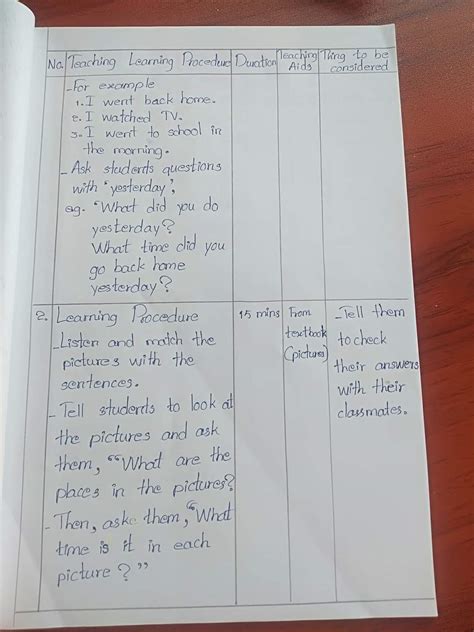 No. Teaching Learning Procedure Duration Teaching Aids Thing to be considered
-For example
1. I went back home.
2. I watched TV.
3. I went to school in
the morning.
- Ask students questions
with "yesterday",
eg. "What did you do
yesterday?
What time did you
go back home
yesterday?
2. Learning Procedure 15 mins From textbook (pictures)
-Listen and match the
pictures with the
sentences.
- Tell students to look at
the pictures and ask
them, "What are the
places in the pictures?
- Then, aske them, "What
time is it in each
picture?"
-Tell them
to check
their answers
with their
classmates.